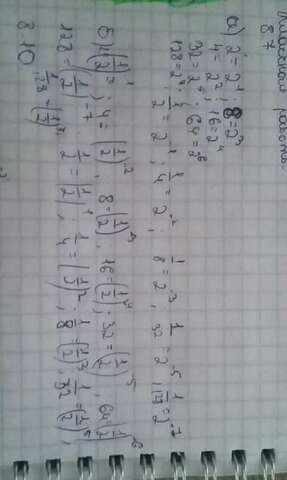 работа
8 7
а) 2 = 2¹; 8 = 2³
4 = 2²; 16 = 2⁴
32 = 2⁵; 64 = 2⁶
128 = 2⁷; 1/2 = 2⁻¹; 1/4 = 2⁻²; 1/8 = 2⁻³; 1/32 = 2⁻⁵; 1/128 = 2⁻⁷
б) 4 = (1/2)⁻²; 8 = (1/2)⁻³; 16 = (1/2)⁻⁴; 32 = (1/2)⁻⁵; 64 = (1/2)⁻⁶
128 = (1/2)⁻⁷; 1/2 = (1/2)¹; 1/4 = (1/2)²; 1/8 = (1/2)³; 1/32 = (1/2)⁵;
1/128 = (1/2)⁷
8.10